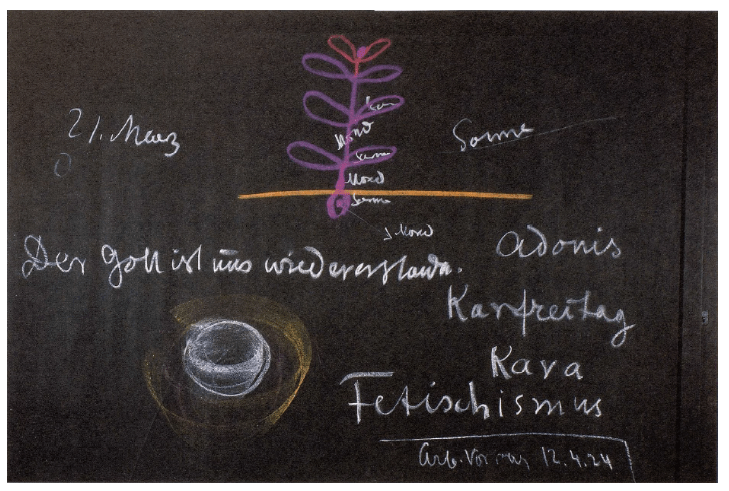 21. Maerz
Sonne
Mond
Sonne
Mond
Sonne
Mond
Der Gott ist uns wiedererstanden.
Adonis
Karfreitag
Kara
Fetischismus
Arb. Vortrag 12.4.24